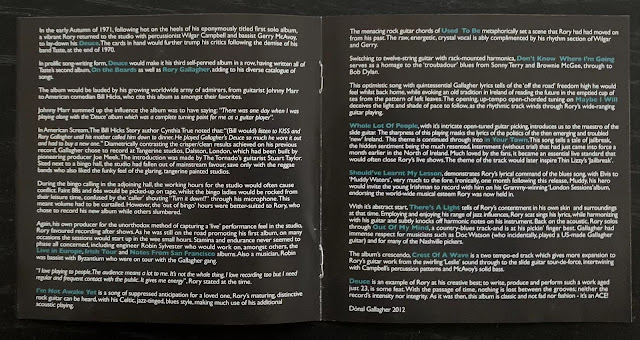 In the early Autumn of 1971, following hot on the heels of his eponymously titled first solo album,
a vibrant Rory returned to the studio with percussionist Wilgar Campbell and bassist Gerry McAvoy,
to lay-down his Deuce. The cards in hand would further trump his critics following the demise of his
band Taste, at the end of 1970.
In prolific song-writing form, Deuce would make it his third self-penned album in a row, having written all of
Taste's second album, On the Boards as well as Rory Gallagher, adding to his diverse catalogue of
songs.
The album would be lauded by his growing worldwide army of admirers, from guitarist Johnny Marr
to American comedian Bill Hicks, who cite this album as amongst their favorites.
Johnny Marr summed up the influence the album was to have saying: "There was one day when I was
playing along with the 'Deuce' album which was a complete turning point for me as a guitar player".
In American Scream, The Bill Hicks Story author Cynthia True noted that: "(Bill would) listen to KISS and
Rory Gallagher until his mother called him down to dinner. He played Gallagher's Deuce so much he wore it out
and had to buy a new one." Diametrically contrasting the crisper/clean results achieved on his previous
record, Gallagher chose to record at Tangerine studios, Dalston, London, which had been built by
pioneering producer Joe Meek. The introduction was made by The Tornado's guitarist Stuart Taylor.
Sited next to a bingo hall, the studio had fallen out of mainstream favour, save only with the reggae
bands who also liked the funky feel of the glaring, tangerine painted studios.
During the bingo calling in the adjoining hall, the working hours for the studio would often cause
conflict. Faint 88s and 66s would be picked-up on tape, whilst the bingo ladies would be rocked from
their leisure time, confused by the 'caller' shouting "Turn it down!!" through his microphone. This
meant volume had to be curtailed. However, the 'out of bingo' hours were better-suited to Rory, who
chose to record his new album while others slumbered.
Again, his own producer for the unorthodox method of capturing a 'live' performance feel in the studio,
Rory favoured recording after shows. As he was still on the road promoting his first album, on many
occasions the sessions would start up in the wee small hours. Stamina and endurance never seemed to
phase all concerned, including engineer Robin Sylvester who would work on, amongst others, the
Live in Europe, Irish Tour and Notes From San Francisco albums. Also a musician, Robin
was bassist with Byzantium who were on tour with the Gallagher gang.
"I love playing to people. The audience means a lot to me. It's not the whole thing, I love recording too but I need
regular and frequent contact with the public. It gives me energy", Rory stated at the time.
I'm Not Awake Yet is a song of suppressed anticipation for a loved one, Rory's maturing, distinctive
rock guitar can be heard, with his Celtic, jazz-tinged, blues style, making much use of his additional
acoustic playing.
The menacing rock guitar chords of Used To Be metaphorically set a scene that Rory had had moved on
from his past. The raw, energetic, crystal vocal is ably complimented by his rhythm section of Wilgar
and Gerry.
Switching to twelve-string guitar with rack-mounted harmonica, Don't Know Where I'm Going
serves as a homage to the 'troubadour' blues from Sonny Terry and Brownie McGee, through to
Bob Dylan.
This optimistic song with quintessential Gallagher lyrics tells of the 'off the road' freedom high he would
feel whilst back home, while evoking an old tradition in Ireland of reading the future in the emptied cup of
tea from the pattern of left leaves. The opening, up-tempo open-chorded tuning on Maybe I Will
deceives the light and shade of pace to follow, as the rhythmic track winds through Rory's wide-ranging
guitar playing.
Whole Lot Of People, with it's intricate open-tuned guitar picking, introduces us to the maestro of the
slide guitar. The sharpness of this playing made the lyrics of the politics of the then emerging and troubled
'new' Ireland. This theme is continued through into In Your Town. This song tells a tale of jailbreak,
the hidden sentiment being the much resented, internment (without trial) that had just came into force a
month earlier in the North of Ireland. Much loved by Rory's fans, it became an essential live standard that
would often close Rory's live shows. The theme of the track would later inspire Thin Lizzy's 'Jailbreak'.
Should've Learnt My Lesson, demonstrates Rory's lyrical command of the blues song, with Elvis to
'Muddy Waters', very much to the fore. Ironically, one month following this release, Muddy, his hero
would invite the young Irishman to record with him on his Grammy-winning 'London Sessions' album,
endorsing the world-wide musical esteem Rory was now held in.
With it's abstract start, There's A Light tells of Rory's contentment in his own skin and surroundings
at that time. Employing and enjoying his range of jazz influences, Rory scat sings his lyrics, while harmonizing
with his guitar and subtly knocks off harmonic notes on his instrument. Back on the acoustic, Rory solos
through Out Of My Mind, a country-blues track-and is at his pickin' finger best. Gallagher had
immense respect for musicians such as Doc Watson (who incidentally, played a US-made Gallagher
guitar) and for many of the Nashville pickers.
The album's crescendo, Crest Of A Wave is a two tempo-ed track which gives more expansion to
Rory's guitar work from the swirling 'Leslie' sound through to the slide guitar tour-de-force, intertwining
with Campbell's percussion patterns and McAvoy's solid bass.
Deuce is an example of Rory at his creative best; to write, produce and perform such a work aged
just 23, is some feat. With the passage of time, nothing is lost between the grooves; neither the
record's intensity nor integrity. As it was then, this album is classic and not fad nor fashion - it's an ACE!
Dónal Gallagher 2012